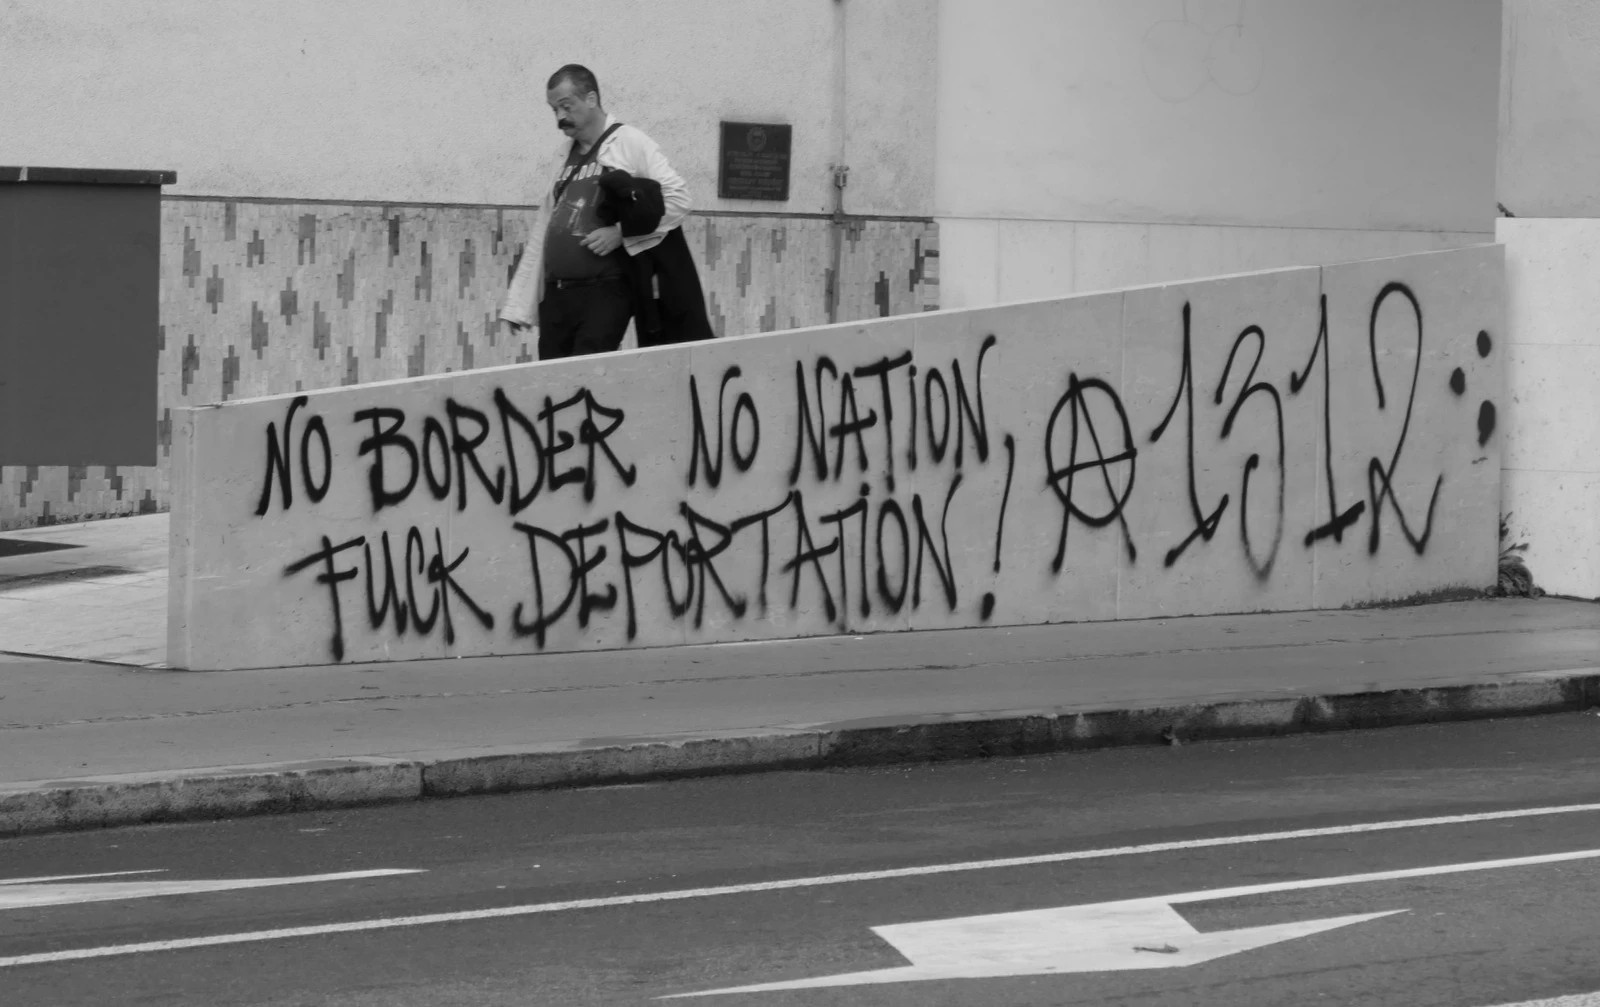 NO BORDER NO NATION,
FUCK DEPORTATION! Ⓐ 1312